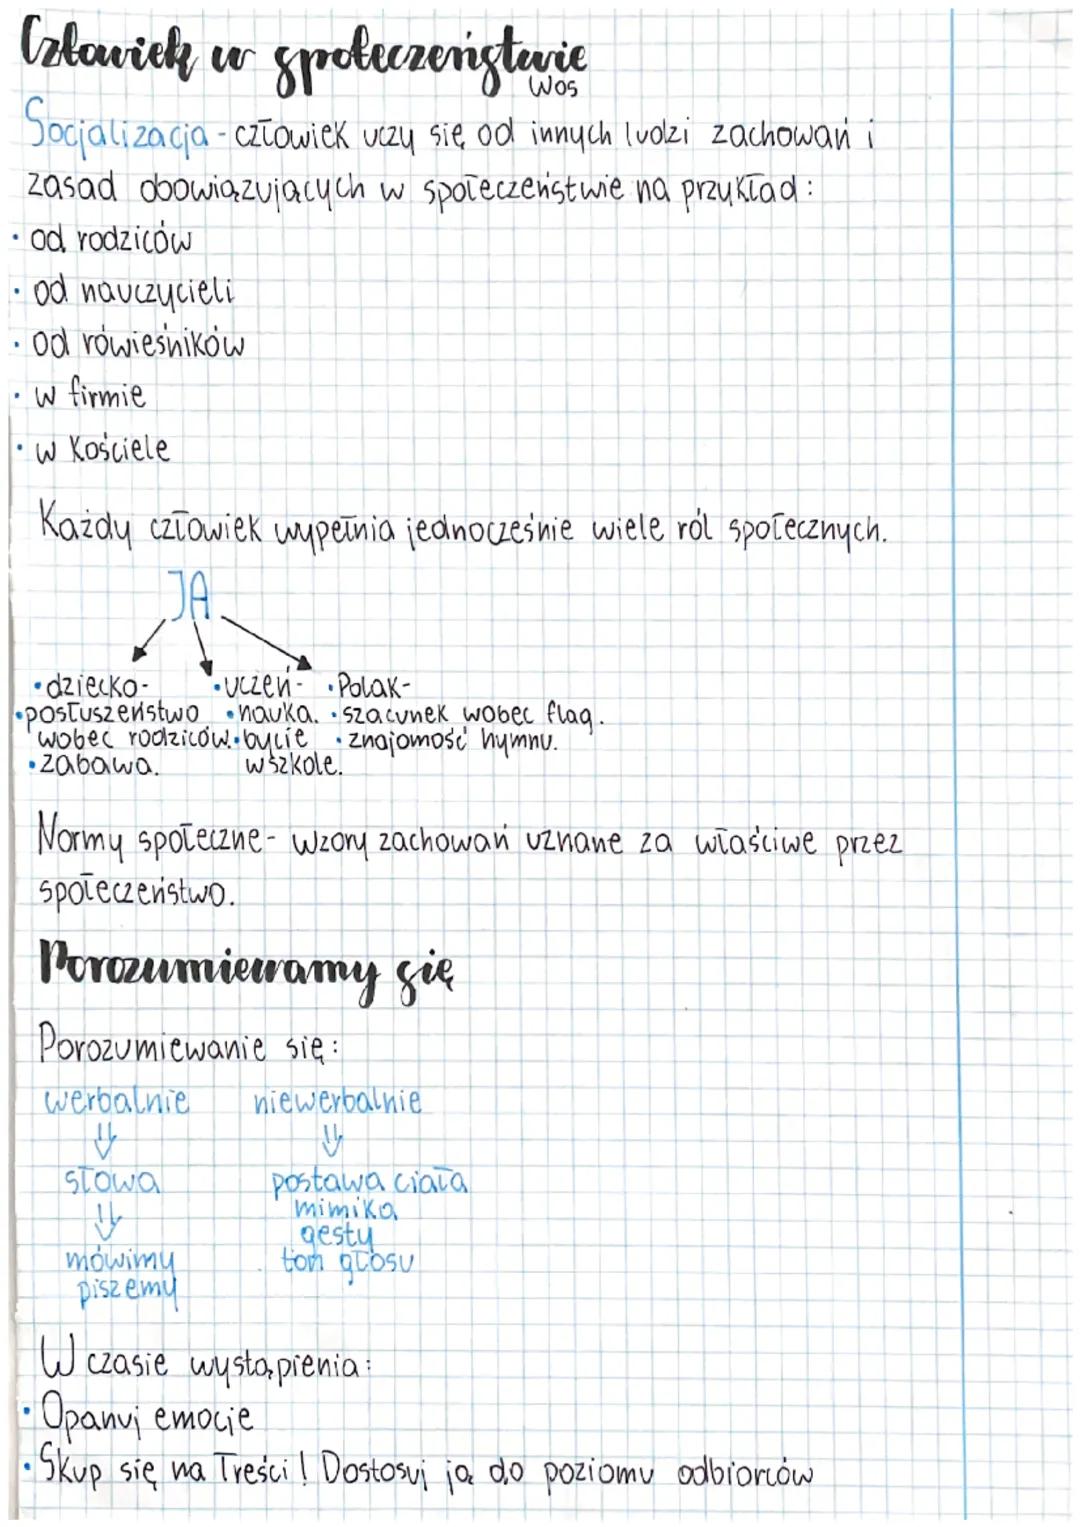 Człowiek w społeczeństwie
WOS
Socjalizacja - człowiek uczy się od innych ludzi zachowań i
zasad obowiązujących w społeczeństwie na przykład:
• od rodziców
• od nauczycieli
• od rówieśników
• w firmie
• w Kościele
Każdy człowiek wypełnia jednocześnie wiele ról społecznych.
JA
• dziecko- • uczeń- • Polak-
• posłuszeństwo • nauka. • szacunek wobec flag.
wobec rodziców. • bycie • znajomość hymnu.
• zabawa. w szkole.
Normy społeczne - wzory zachowań uznane za właściwe przez
społeczeństwo.
Porozumiewamy się
Porozumiewanie się:
werbalnie niewerbalnie
⇓ ⇓
słowa postawa ciała
⇓ mimika
gesty
mówimy ton głosu
piszemy
W czasie wystąpienia:
• Opanuj emocje
• Skup się na Treści! Dostosuj ją do poziomu odbiorców